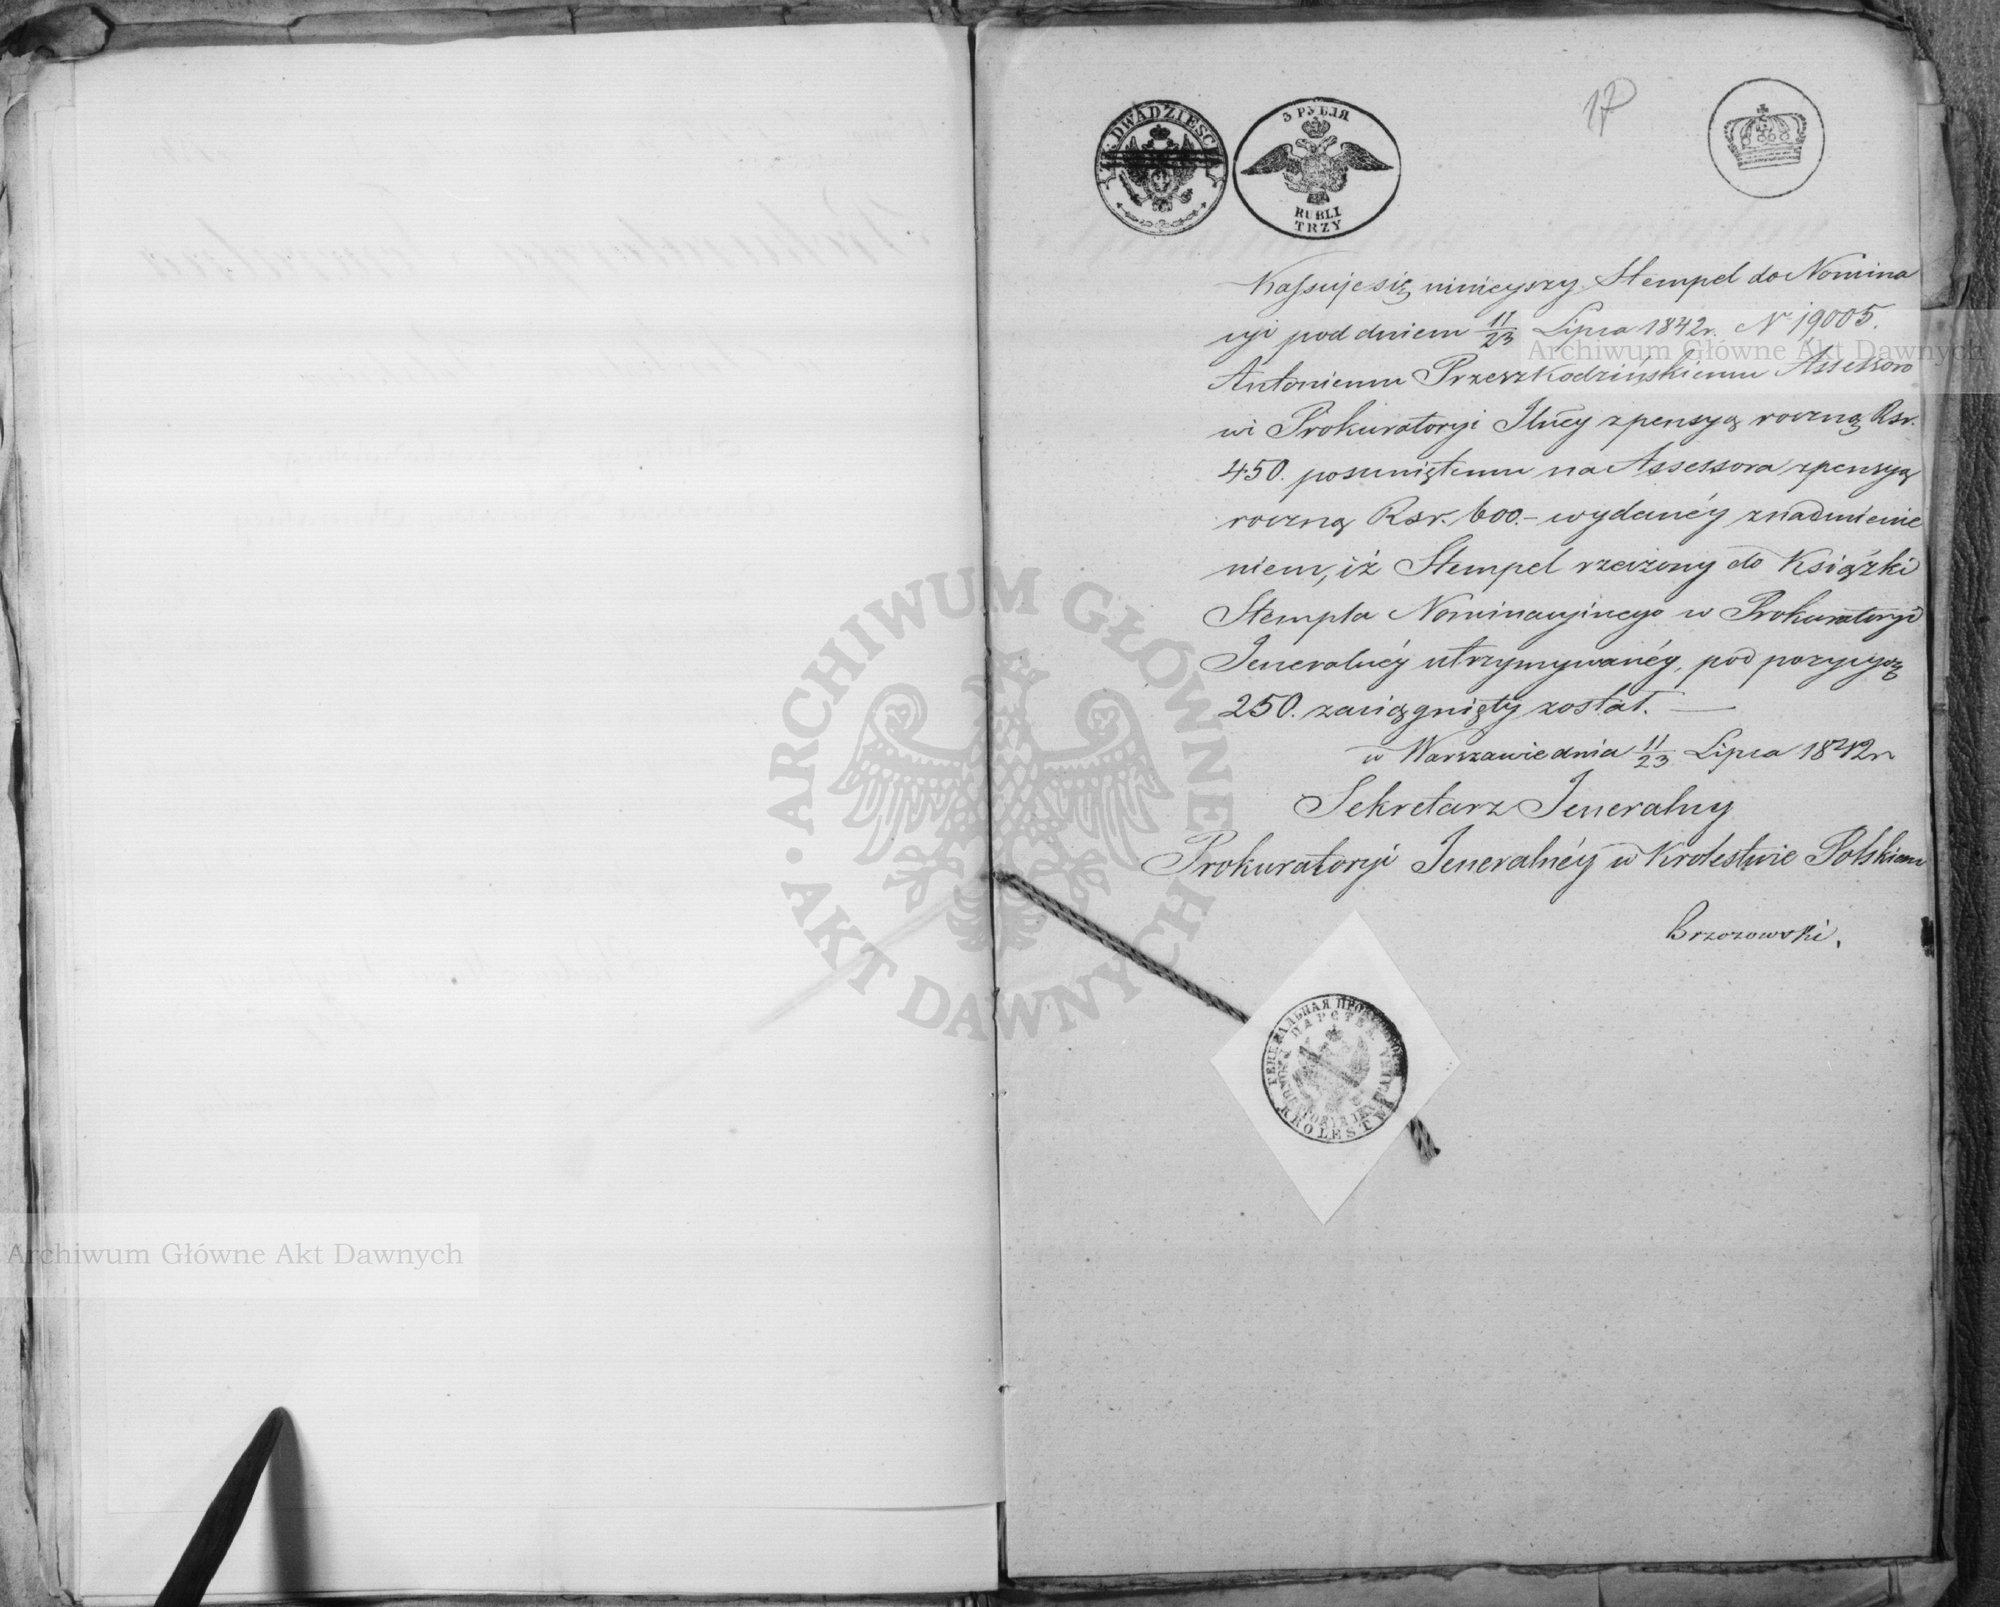 17
ZŁ: DWADZIEŚCIA
3 РУБЛЯ
RUBLI
TRZY
Kassuje się ninieyszy Stempel do Nomina
cyi pod dniem 11/23 Lipca 1842r. N 19005.
Antoniemu Przeszkodzińskiemu Assessoro
wi Prokuratoryi z pensyą roczną Rsr.
450. posuniętemu na Assessora z pensyą
roczną Rsr. 600.- wydanéy z nadmienie
niem, iż Stempel rzeczony do Książki
Stempla Nominacyjnego w Prokuratoryi
Jeneralnéy utrzymywanéy, pod pozycyą
250. zaciągnięty został. —
w Warszawie dnia 11/23 Lipca 1842r
Sekretarz Jeneralny
Prokuratoryi Jeneralnéy w Królestwie Polskiem
Brzozowski.
ГЕНЕРАЛЬНАЯ
ЦАРСТВА
KROLESTWA
ARCHIWUM GŁÓWNE
AKT DAWNYCH
Archiwum Główne Akt Dawnych
Archiwum Główne Akt Dawnych